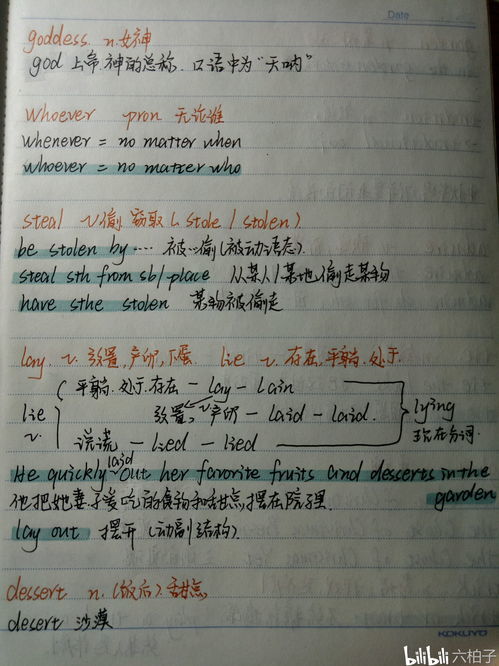 Date
goddess. n.女神
god 上帝.神的总称. 口语中为“天呐”
whoever pron 无论谁
whenever = no matter when
whoever = no matter who
steal v偷.窃取(stole / stolen).
be stolen by .... 被…偷(被动语态).
steal sth from sb/place 从某人/某地偷走某物
have sthe stolen 某物被偷走
lay. v. 放置,产卵,下蛋. lie v.存在,平躺.处于.
(平躺.处于.存在 - lay - lain
lie 放置, v产卵 - laid - laid. lying
v. 说谎 - lied - lied 现在分词.
He quickly laid out her favorite fruits and desserts in the
garden
他把她妻子爱吃的食物和甜点摆在院子里.
lay out 摆开(动副结构).
dessert n.(饭后)甜点
desert 沙漠
KOKUYO
bilibili 六柏子